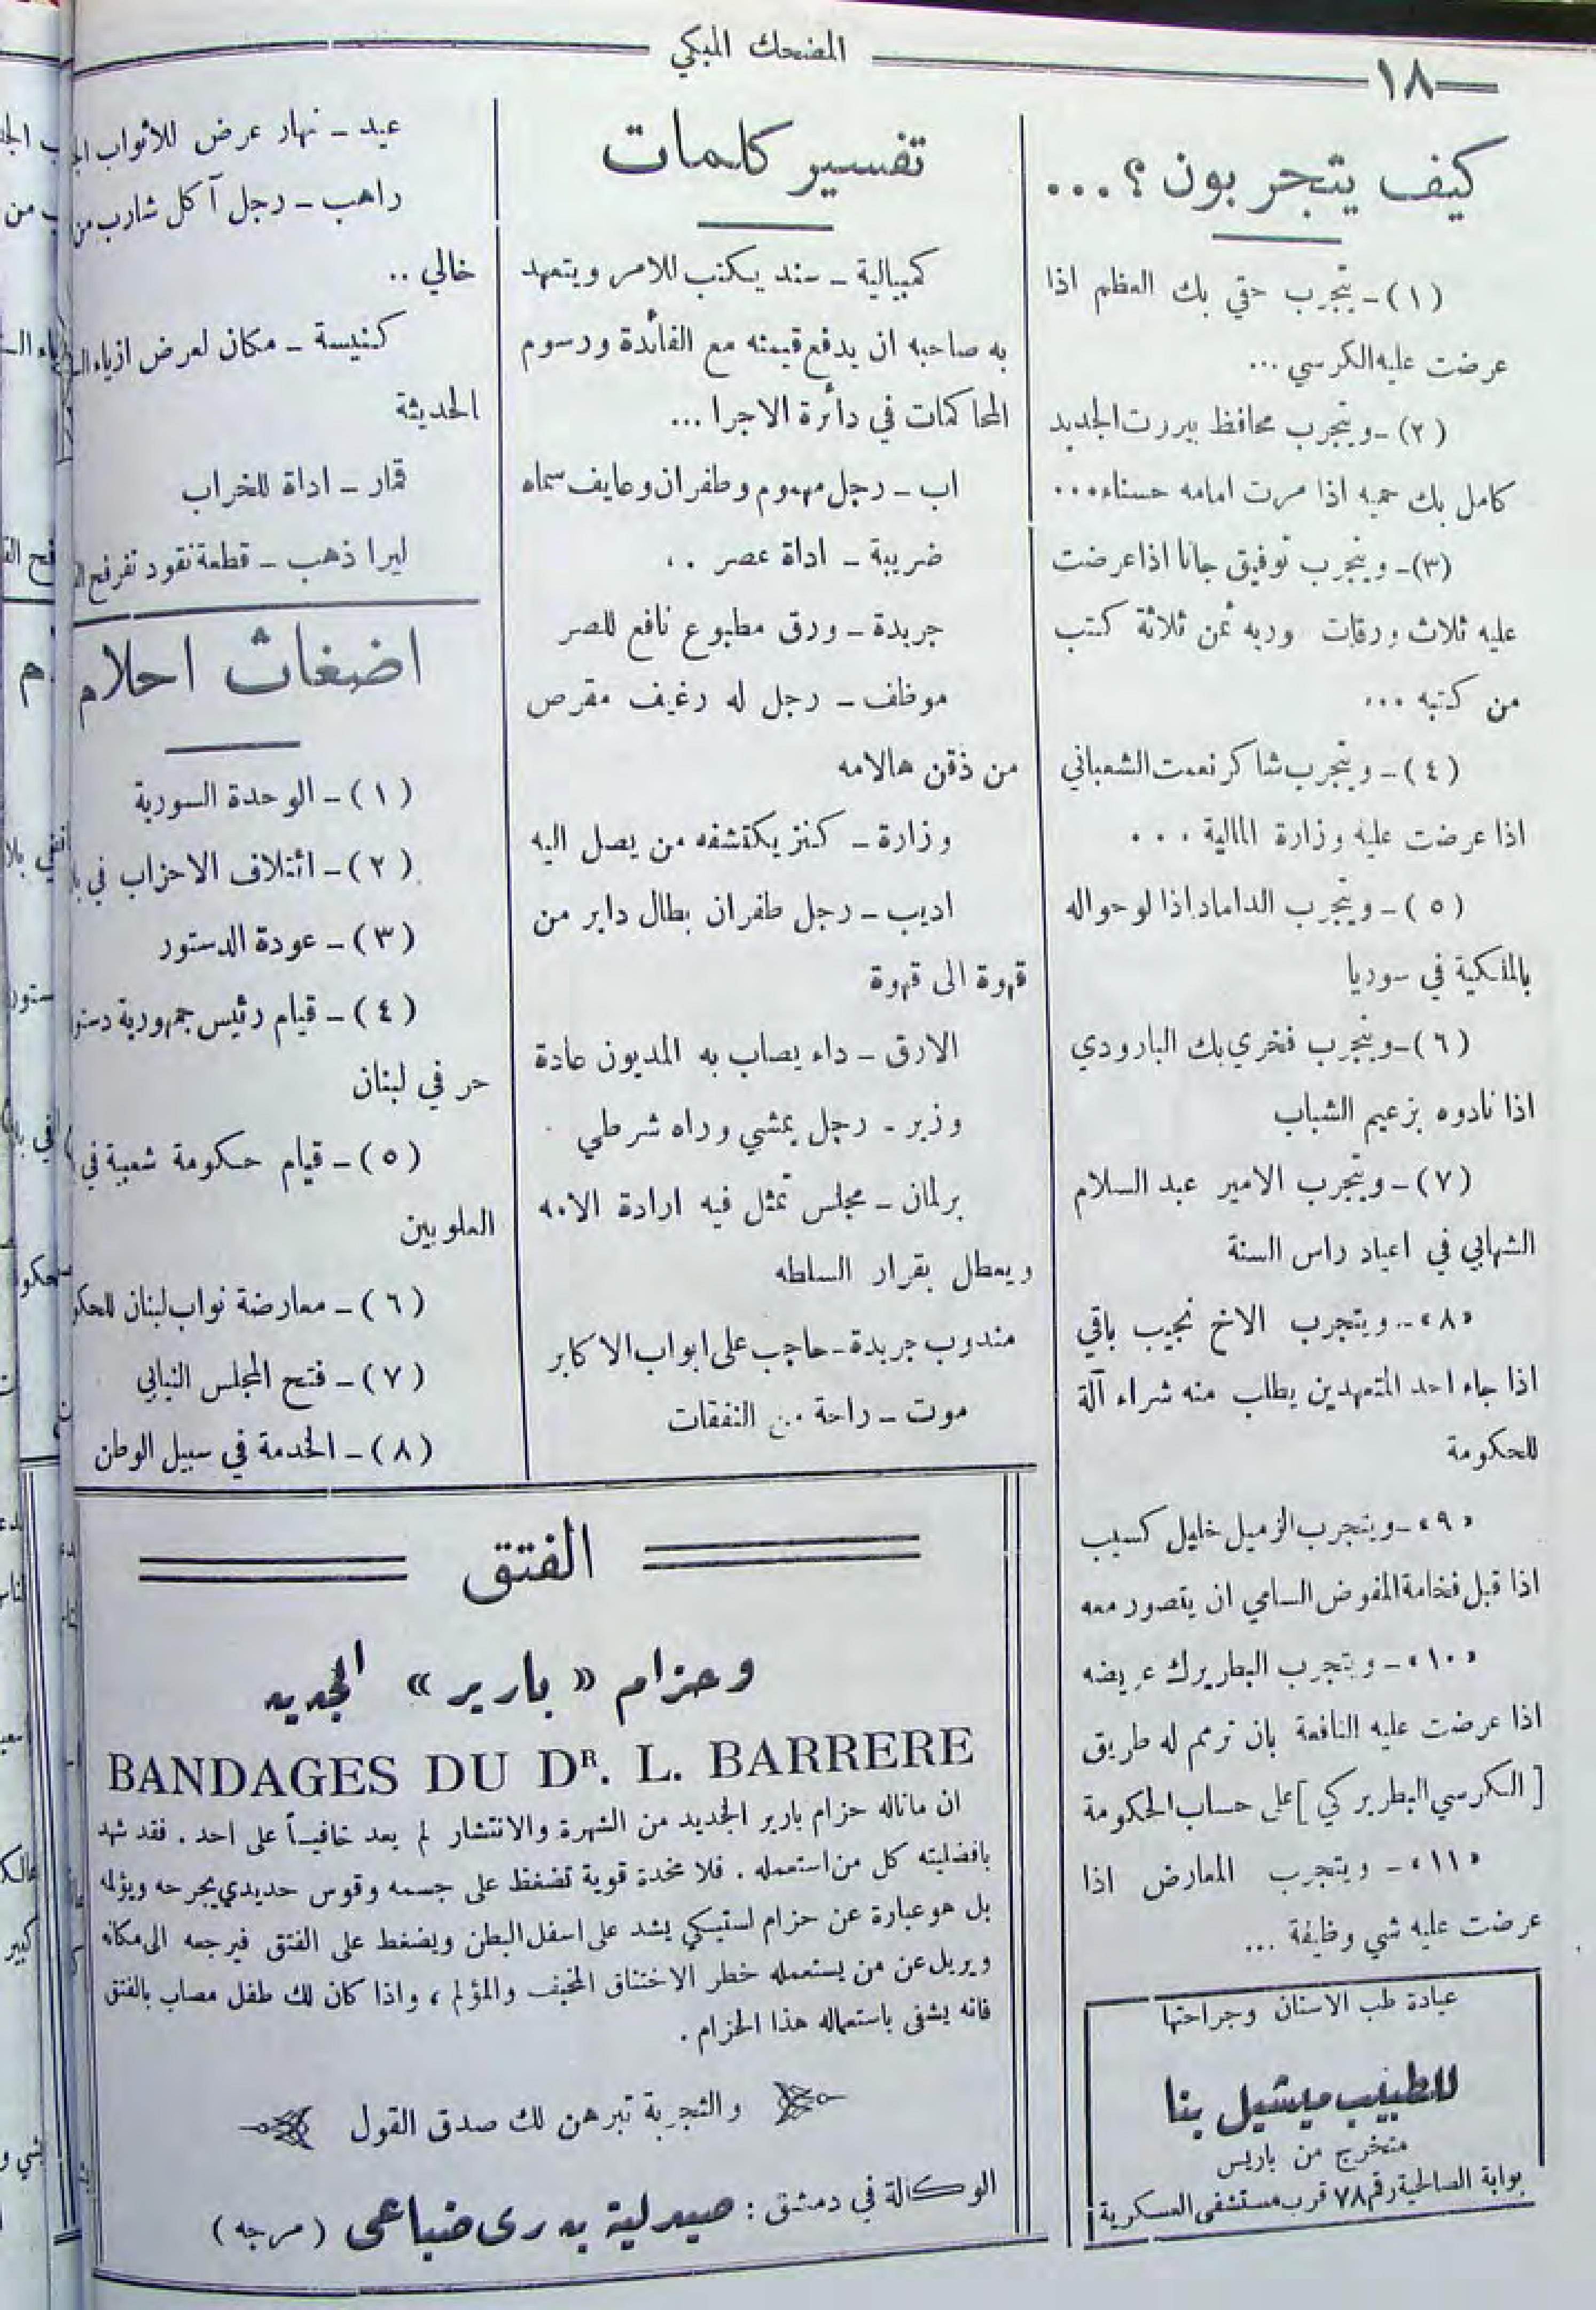 ١٨
المضحك المبكي
كيف يتجربون ؟ ...
(١) - يتجرب حقي بك العظم اذا
عرضت عليه الكرسي ...
(٢) - ويتجرب محافظ بيروت الجديد
كامل بك حميه اذا مرت امامه حسناء ...
(٣) - ويتجرب توفيق جانا اذا عرضت
عليه ثلاث ورقات وربه ثمن ثلاثة كتب
من كتبه ...
(٤) - ويتجرب شاكر نعمت الشعباني
اذا عرضت عليه وزارة المالية ...
(٥) - ويتجرب الداماد اذا لوحوا له
بالملكية في سوريا
(٦) - ويتجرب فخري بك البارودي
اذا نادوه بزعيم الشباب
(٧) - ويتجرب الامير عبد السلام
الشهابي في اعياد راس السنة
«٨» - ويتجرب الاخ نجيب باقي
اذا جاء احد المتعهدين يطلب منه شراء آلة
للحكومة
«٩» - ويتجرب الزميل خليل كسيب
اذا قبل فخامة المفوض السامي ان يتصور معه
«١٠» - ويتجرب البطريرك عريضه
اذا عرضت عليه النافعة بان ترمم له طريق
[ الكرسي البطريركي ] على حساب الحكومة
«١١» - ويتجرب المعارض اذا
عرضت عليه شي وظيفة ...
عيادة طب الاسنان وجراحتها
للطبيب ميشيل بنا
متخرج من باريس
بوابة الصالحية رقم ٧٨ قرب مستشفى العسكرية
تفسير كلمات
كمبيالية - سند يكتب للامر ويتعهد
به صاحبه ان يدفع قيمته مع الفائدة ورسوم
المحاكمات في دائرة الاجرا ...
اب - رجل مهموم وطفران وعايف سماه
ضريبة - اداة عصر ..
جريدة - ورق مطبوع نافع للصر
موظف - رجل له رغيف مقرص
من ذقن هالامه
وزارة - كنز يكتشفه من يصل اليه
اديب - رجل طفران بطال داير من
قهوة الى قهوة
الارق - داء يصاب به المديون عادة
وزير - رجل يمشي وراه شرطي
برلمان - مجلس تمثل فيه ارادة الامه
ويعطل بقرار السلطه
مندوب جريدة - حاجب على ابواب الاكابر
موت - راحة من النفقات
عيد - نهار عرض للاثواب
راهب - رجل آكل شارب من
خالي ..
كنيسة - مكان لعرض ازياء
الحديثة
قمار - اداة للخراب
ليرا ذهب - قطعة نقود تفرفح
اضغاث احلام
(١) - الوحدة السورية
(٢) - ائتلاف الاحزاب في
(٣) - عودة الدستور
(٤) - قيام رئيس جمهورية
حر في لبنان
(٥) - قيام حكومة شعبية في
العلويين
(٦) - معارضة نواب لبنان
(٧) - فتح المجلس النيابي
(٨) - الخدمة في سبيل الوطن
الفتق
وحزام « بارير » الجديد
BANDAGES DU DR. L. BARRERE
ان ماناله حزام بارير الجديد من الشهرة والانتشار لم يعد خافيـاً على احد . فقد شهد
بافضليته كل من استعمله . فلا مخدة قوية تضغط على جسمه وقوس حديدي يجرحه ويؤلمه
بل هو عبارة عن حزام لستيكي يشد على اسفل البطن ويضغط على الفتق فيرجعه الى مكانه
ويريل عن من يستعمله خطر الاختناق المخيف والمؤلم ، واذا كان لك طفل مصاب بالفتق
فانه يشفى باستعماله هذا الحزام .
والتجربة تبرهن لك صدق القول
الوكالة في دمشق : صيدلية بدري ضباعي ( مرجه )